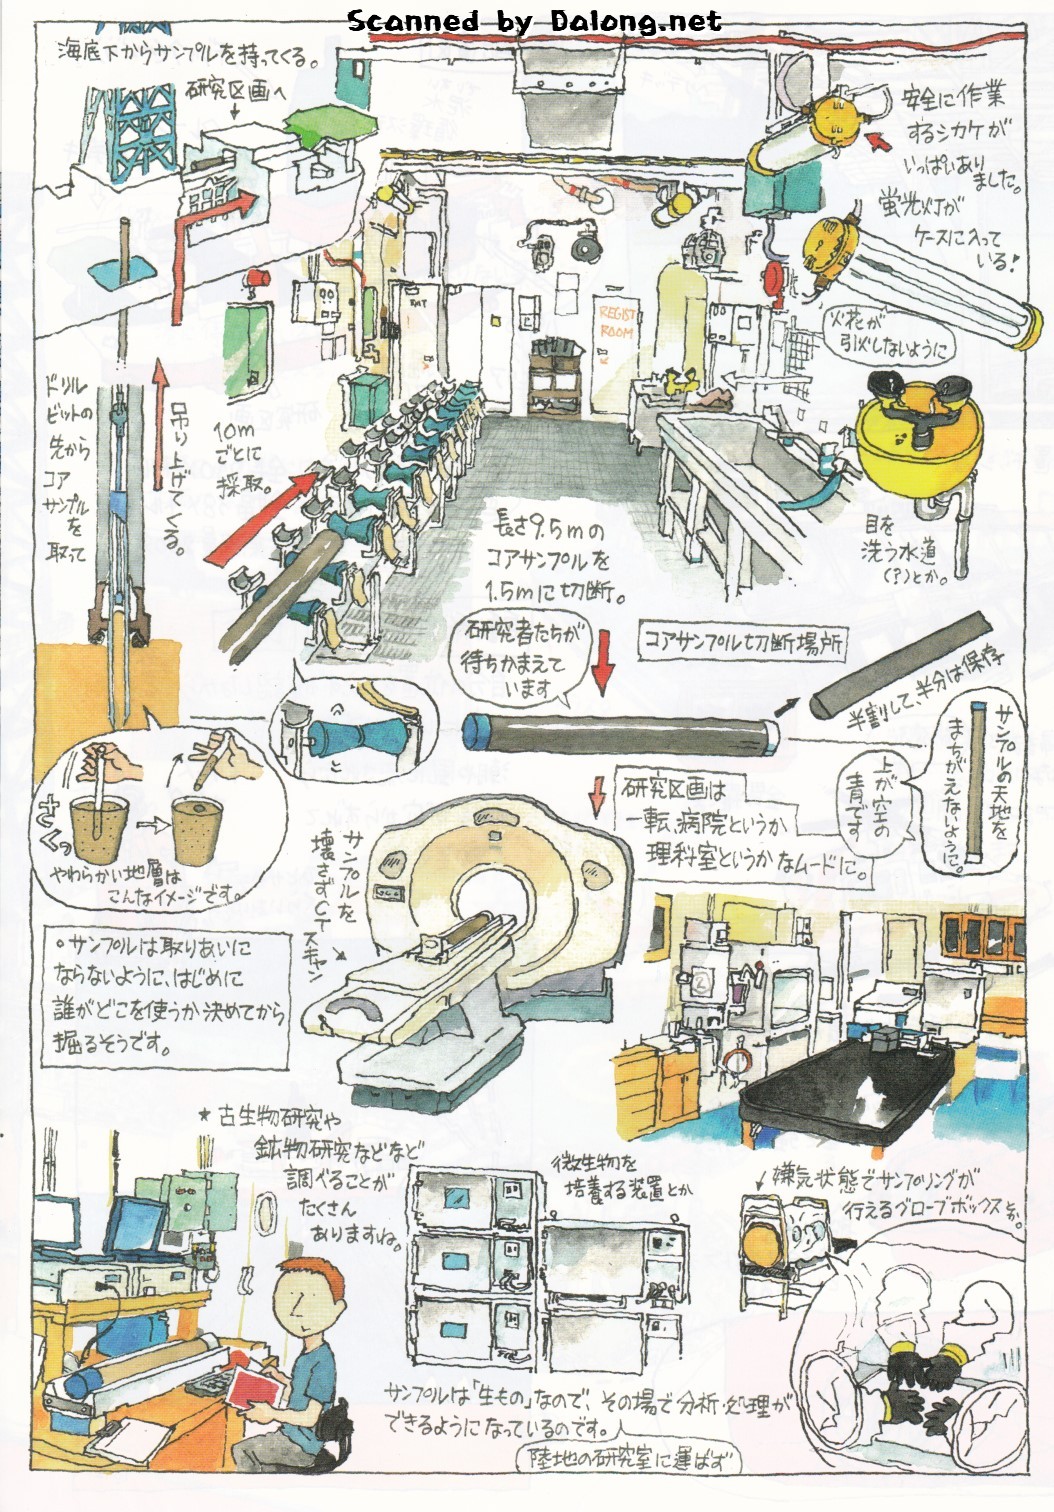 Scanned by Dalong.net
海底下からサンプルを持ってくる。
研究区画へ
安全に作業
するシカケが
いっぱいあり
ました。
蛍光灯が
ケースに入って
いる!
火花が
引火しないように
EXIT
REGIST
ROOM
ドリル
ビットの
先から
コア
サンプルを
取って
吊り上げてくる。
10m
ごとに
採取。
長さ9.5mの
コアサンプルを
1.5mに切断。
目を
洗う水道
(?)とか。
研究者たちが
待ちかまえて
います
コアサンプル切断場所
半割して、半分は保存
サンプルの天地を
まちがえないように。
上が空の
青です
さくっ
やわらかい地層は
こんなイメージです。
サンプルを
壊さずCT
スキャン
研究区画は
一転、病院というか
理科室というかなムードに。
・サンプルは取りあいに
ならないように、はじめに
誰がどこを使うか決めてから
掘るそうです。
★古生物研究や
鉱物研究などなど
調べることが
たくさん
ありますね。
微生物を
培養する装置とか
嫌気状態でサンプリングが
行えるグローブボックスetc.
サンプルは「生もの」なので、その場で分析・処理が
できるようになっているのです。
陸地の研究室に運ばず